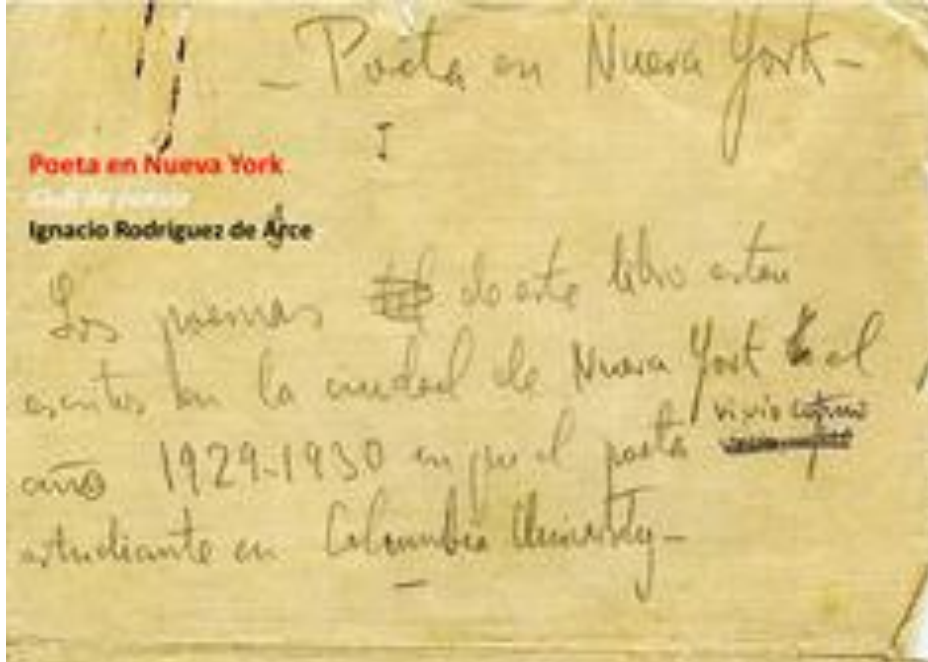 - Poeta en Nueva York -
I
Poeta en Nueva York
Ignacio Rodríguez de Arce
Los poemas de este libro estan
escritos en la ciudad de Nueva York el
año 1929-1930 en que el poeta vivio como
estudiante en Columbia University -